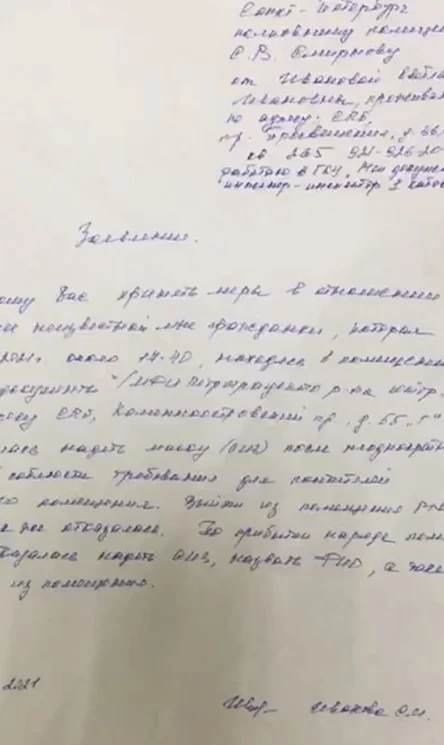 Санкт-Петербург
полковнику полиции
С.В. Смирнову
от Ивановой
Ивановны, прожива
по адресу: СПб,
пр. Просвещения, д.
кв 265 921-926-20
работаю в ГБУ
инженер-инспектор 1 кат
Заявление.
ошу Вас принять меры в отношении
неизвестной мне гражданки, которая
около 14-40, находясь в помещении
документы" МФЦ Петроградского р-на
СПб, Каменноостровский пр., д. 55
лась надеть маску (СИЗ) после неоднократн
соблюсти требования для посетителей
го помещения. Выйти из помещения
отказалась. По прибытии наряда поли
казалась надеть СИЗ, назвать ФИО, а так
из помещения.
2021
Иванова С.И.